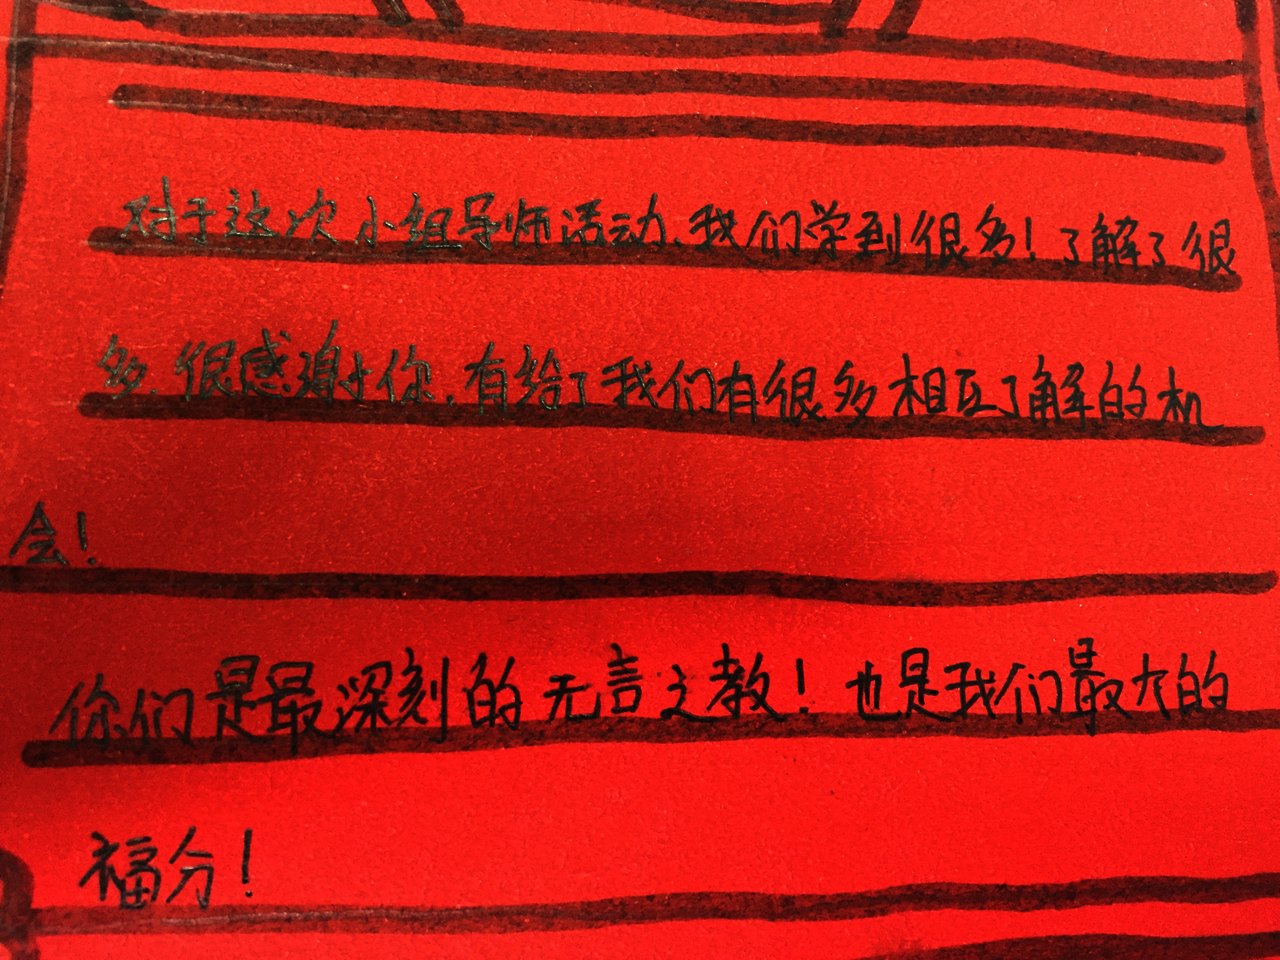 对于这次小组导师活动、我们学到很多！了解了很
多、很感谢你、有给了我们有很多相互了解的机
会！
你们是最深刻的无言之教！也是我们最大的
福分！